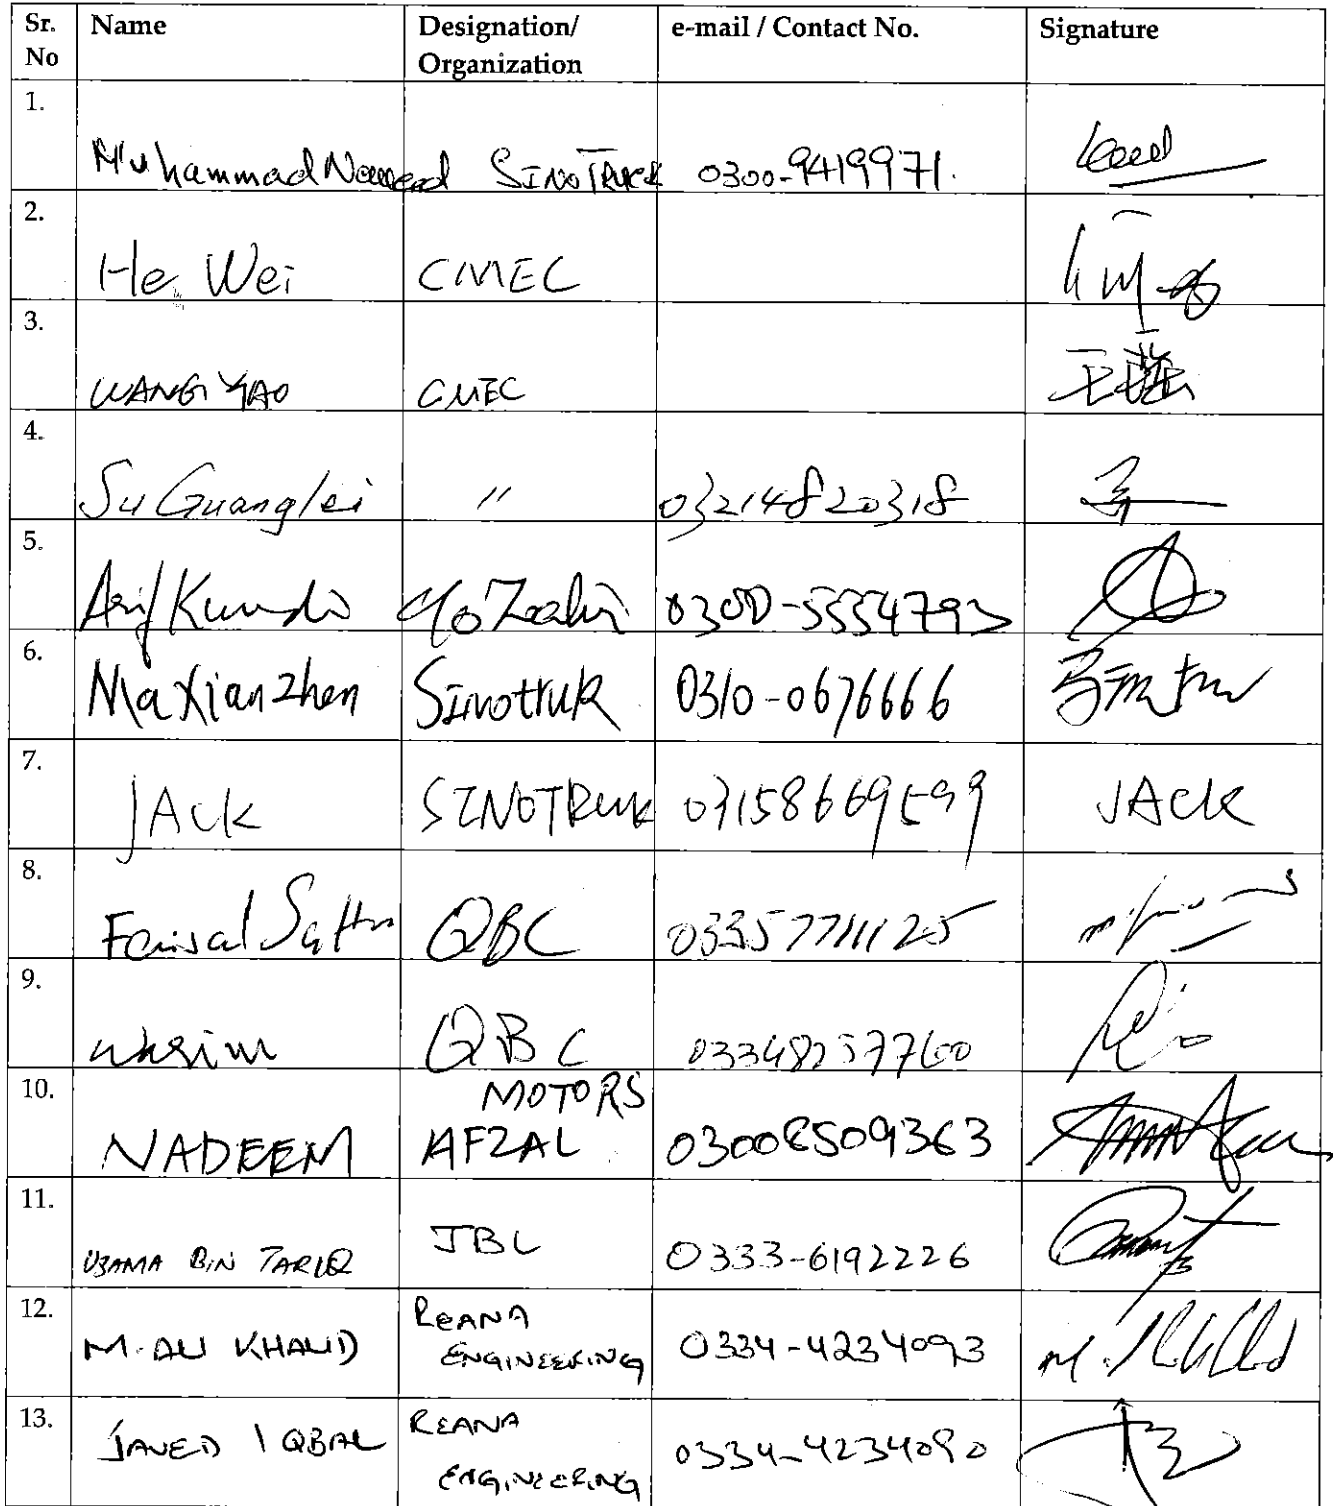 Sr. No Name Designation/ Organization e-mail / Contact No. Signature
1. Muhammad Naveed SINOTRUCK 0300-9419971.
2. He Wei CMEC
3. WANG YAO CMEC 王
4. Su Guanglei " 03214820318
5. Arif Kundi 0300-5554793
6. Ma Xianzhen Sinotruk 0310-0676666
7. JAck SINOTRuk 03158669599 JAck
8. Faisal Sattar QBC
9. Wasim QBC
10. NADEEM AFZAL MOTORS 03008509363
11. USAMA BIN TARIQ JBL 0333-6192226
12. M. ALI KHALID REANA ENGINEERING 0334-4234093 M.
13. JAVED IQBAL REANA ENGINEERING 0334-4234090